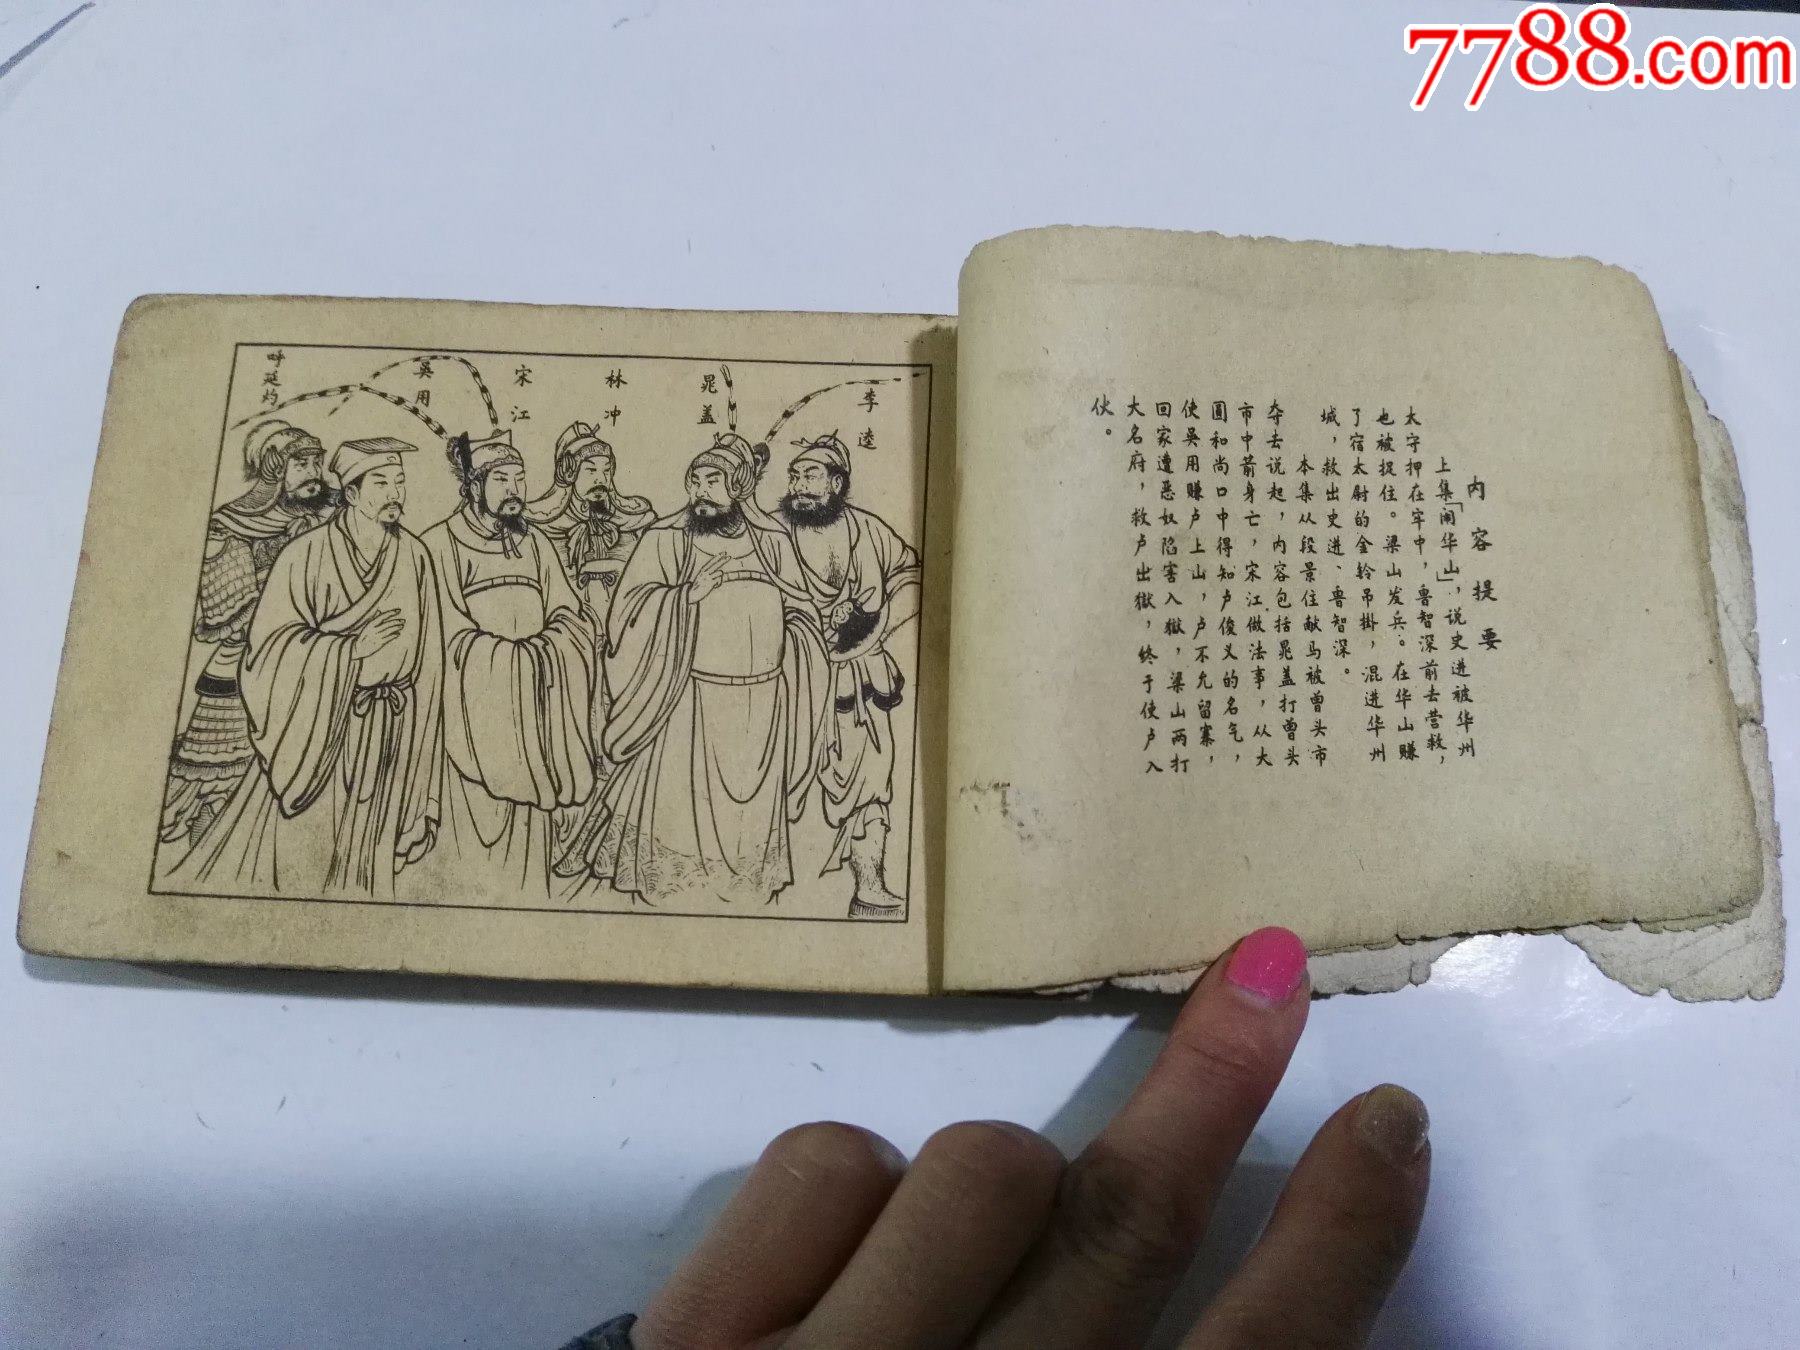 7788.com
呼延灼
吳用
宋江
林冲
晁盖
李逵
内容提要
上集「闹华山」，说史进被华州
太守押在牢中，鲁智深前去营救，
也被捉住。梁山发兵。在华山赚
了宿太尉的金铃吊掛，混进华州
城，救出史进、鲁智深。
本集从段景住献马被曾头市
夺去说起，内容包括晁盖打曾头
市中箭身亡，宋江做法事，从大
圆和尚口中得知卢俊义的名气，
使吳用赚卢上山，卢不允留寨，
回家遭恶奴陷害入獄，梁山两打
大名府，救卢出獄，终于使卢入
伙。